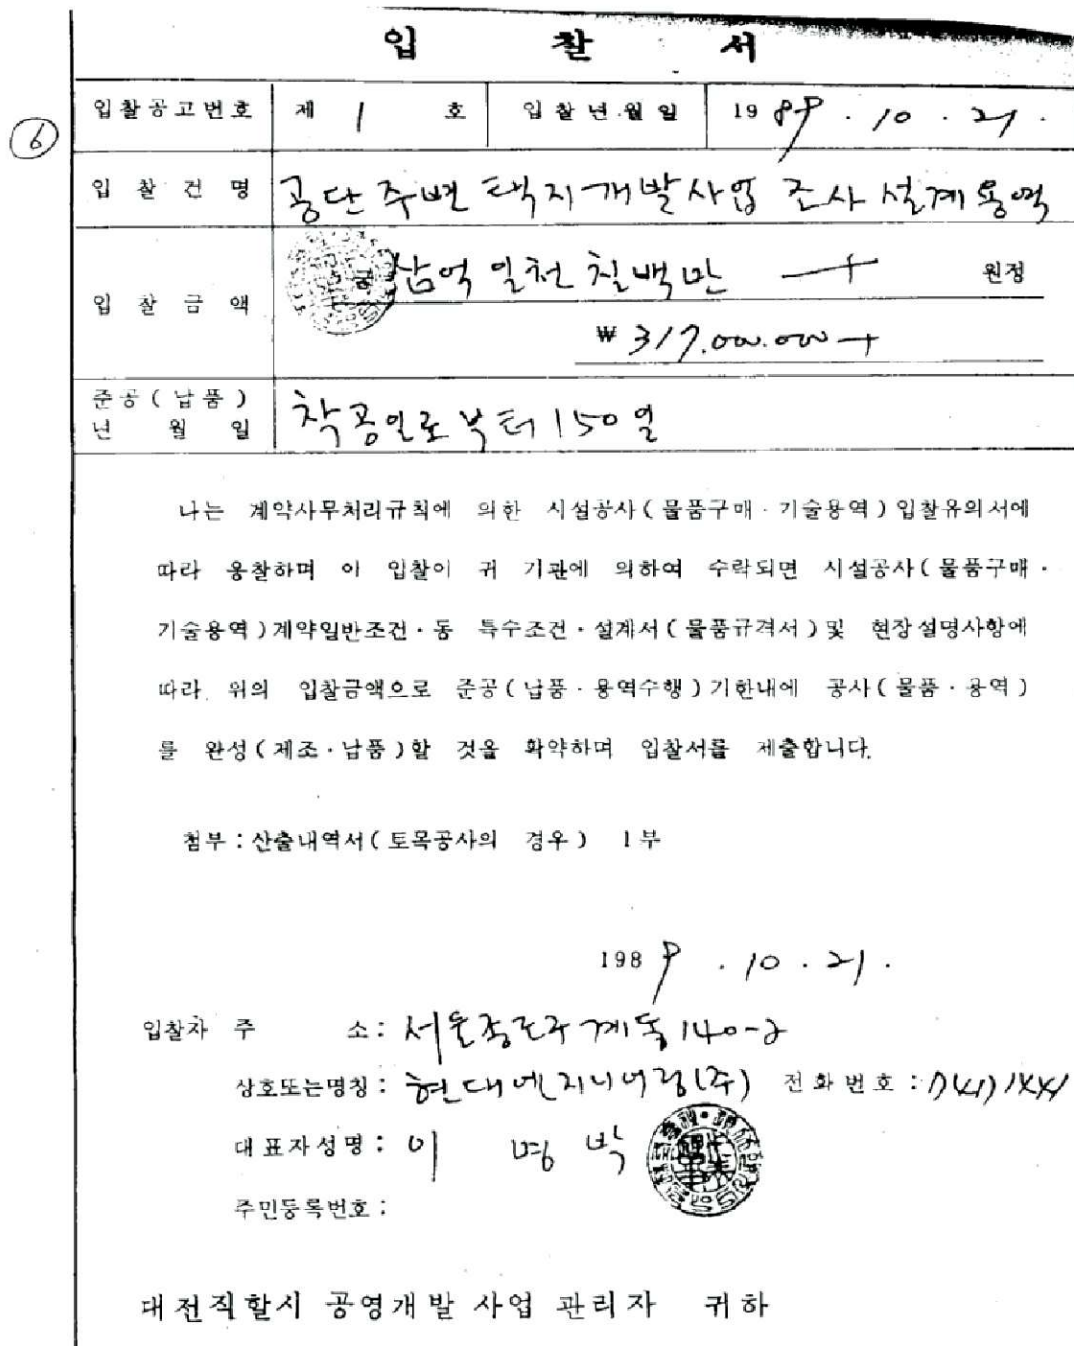 입 찰 서
입찰공고번호 제 1 호 입찰년월일 1989. 10. 21.
⑥
입 찰 건 명 공단주변택지개발사업 조사설계용역
입 찰 금 액 삼억일천칠백만 원정
₩ 317.000.000
준공(납품)
년 월 일 착공일로부터 150일
나는 계약사무처리규칙에 의한 시설공사(물품구매·기술용역)입찰유의서에
따라 응찰하며 이 입찰이 귀 기관에 의하여 수락되면 시설공사(물품구매·
기술용역)계약일반조건·동 특수조건·설계서(물품규격서)및 현장설명사항에
따라 위의 입찰금액으로 준공(납품·용역수행)기한내에 공사(물품·용역)
를 완성(제조·납품)할 것을 확약하며 입찰서를 제출합니다.
첨부:산출내역서(토목공사의 경우) 1부
1989. 10. 21.
입찰자 주 소: 서울종로구계동140-2
상호또는명칭: 현대엔지니어링(주) 전화번호:
대표자성명: 이 명 박
주민등록번호:
대전직할시 공영개발 사업 관리자 귀하